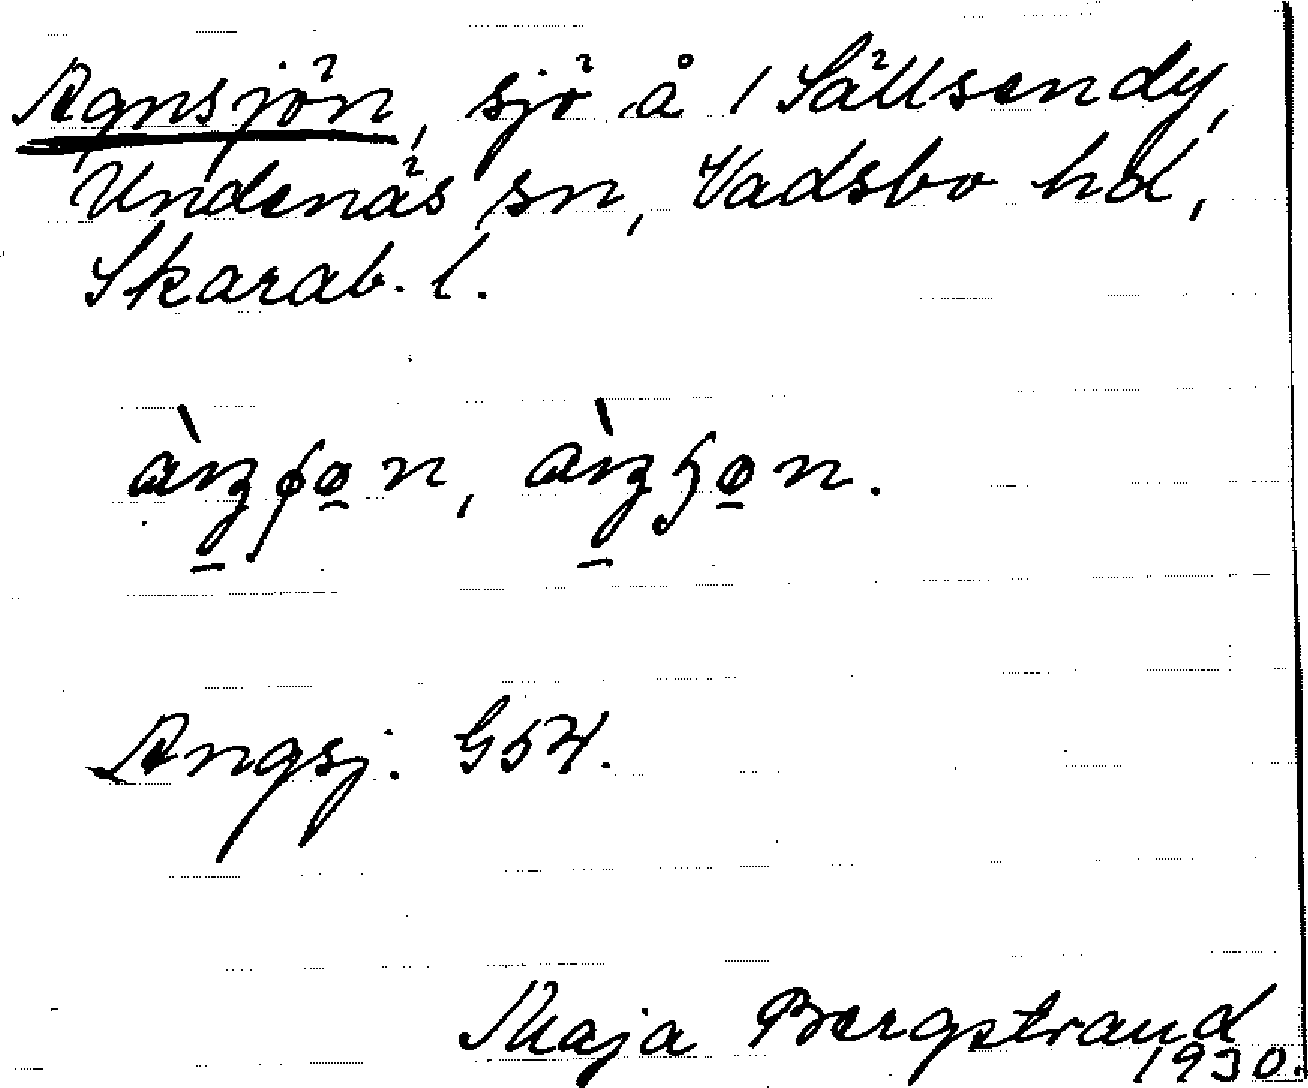 Agnsjön, sjö å / Sällsendy,
Undenäs sn, Vadsbo hd,
Skarab. l.
Angsj. G54.
Maja Bergstrand
1930.